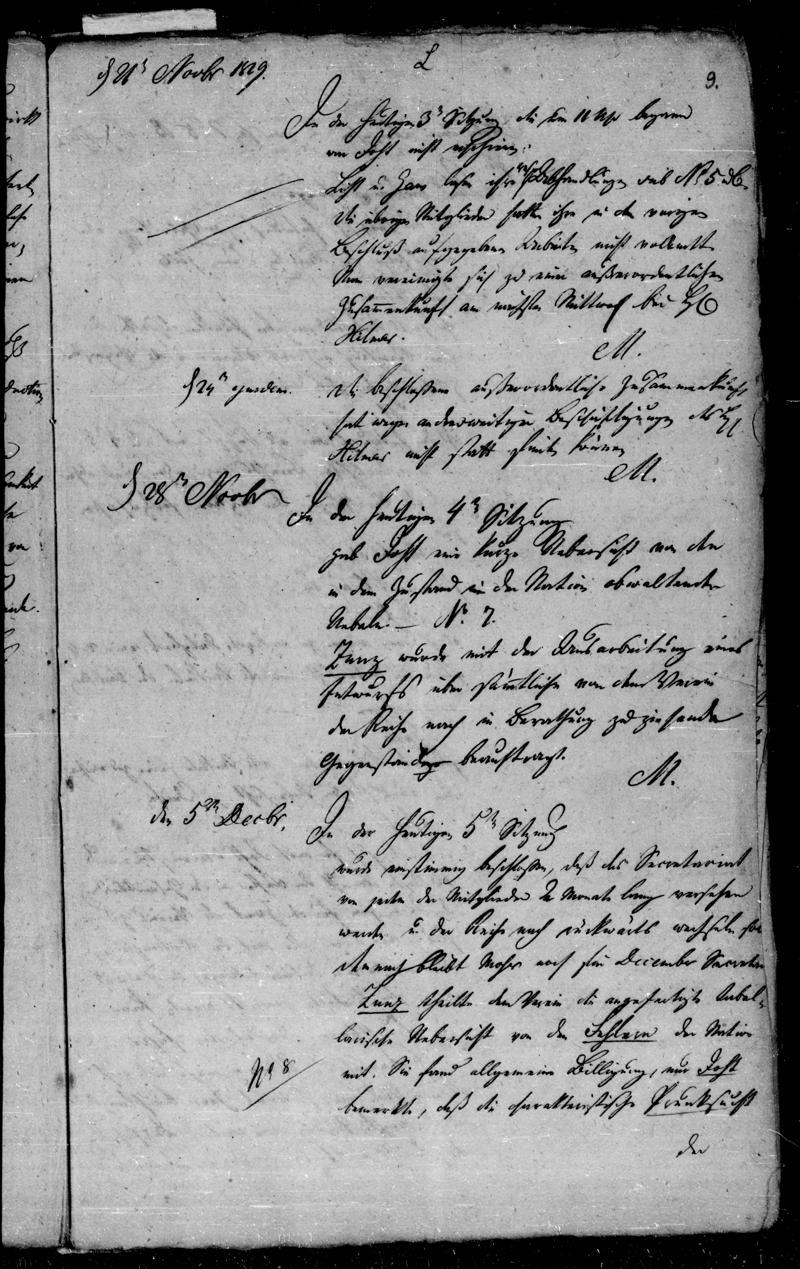 d 21n Novbr 1819.
9.
In der heutigen 3n Sitzung, die um 11 Uhr begann
war Jost nicht erschienen.
List u. Gans lasen ihre Abhandlungen sub No 5 & 6.
Die übrigen Mitglieder hatten ihre in der vorigen
Beschluß aufgegebenen Arbeiten nicht vollendet.
Man vereinigte sich zu einer außerordentlichen
Zusammenkunft am nächsten Mittwoch bei H
Hilmar.
M.
d 24n ejusdem.
Die beschlossene außerordentliche Zusammenkunft
hat wegen anderweitiger Beschäftigungen des H
Hilmar nicht statt finden können
M.
d 28n Novbr
In der heutigen 4n Sitzung
gab Jost eine kurze Uebersicht von den
in dem Zustand in der Nation obwaltenden
Uebeln. — No. 7.
Zunz wurde mit der Ausarbeitung eines
Entwurfs über sämtliche von dem Verein
der Reihe nach in Berathung zu ziehende
Gegenstände beauftragt.
M.
den 5ten Decbr.
In der heutigen 5n Sitzung
wurde einstimmig beschlossen, daß das Secretariat
von jedem der Mitglieder 2 Monate lang versehen
werde u. der Reihe nach rückwärts wechseln
demnach bleibt Moser noch für December Secretär
Zunz theilte dem Verein die angefertigte tabel-
larische Uebersicht von den Fehlern der Nation
No 8
mit. Sie fand allgemeine Billigung, nur Jost
bemerkte, daß die charakteristische Prunksucht
der